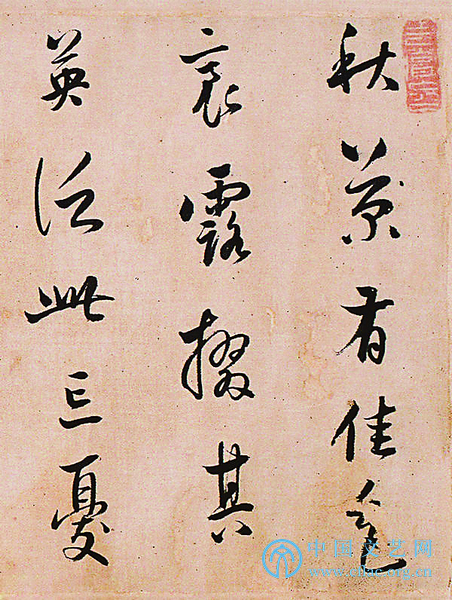 秋菊有佳色
裛露掇其
英泛此忘憂
中国文艺网
www.cflac.org.cn